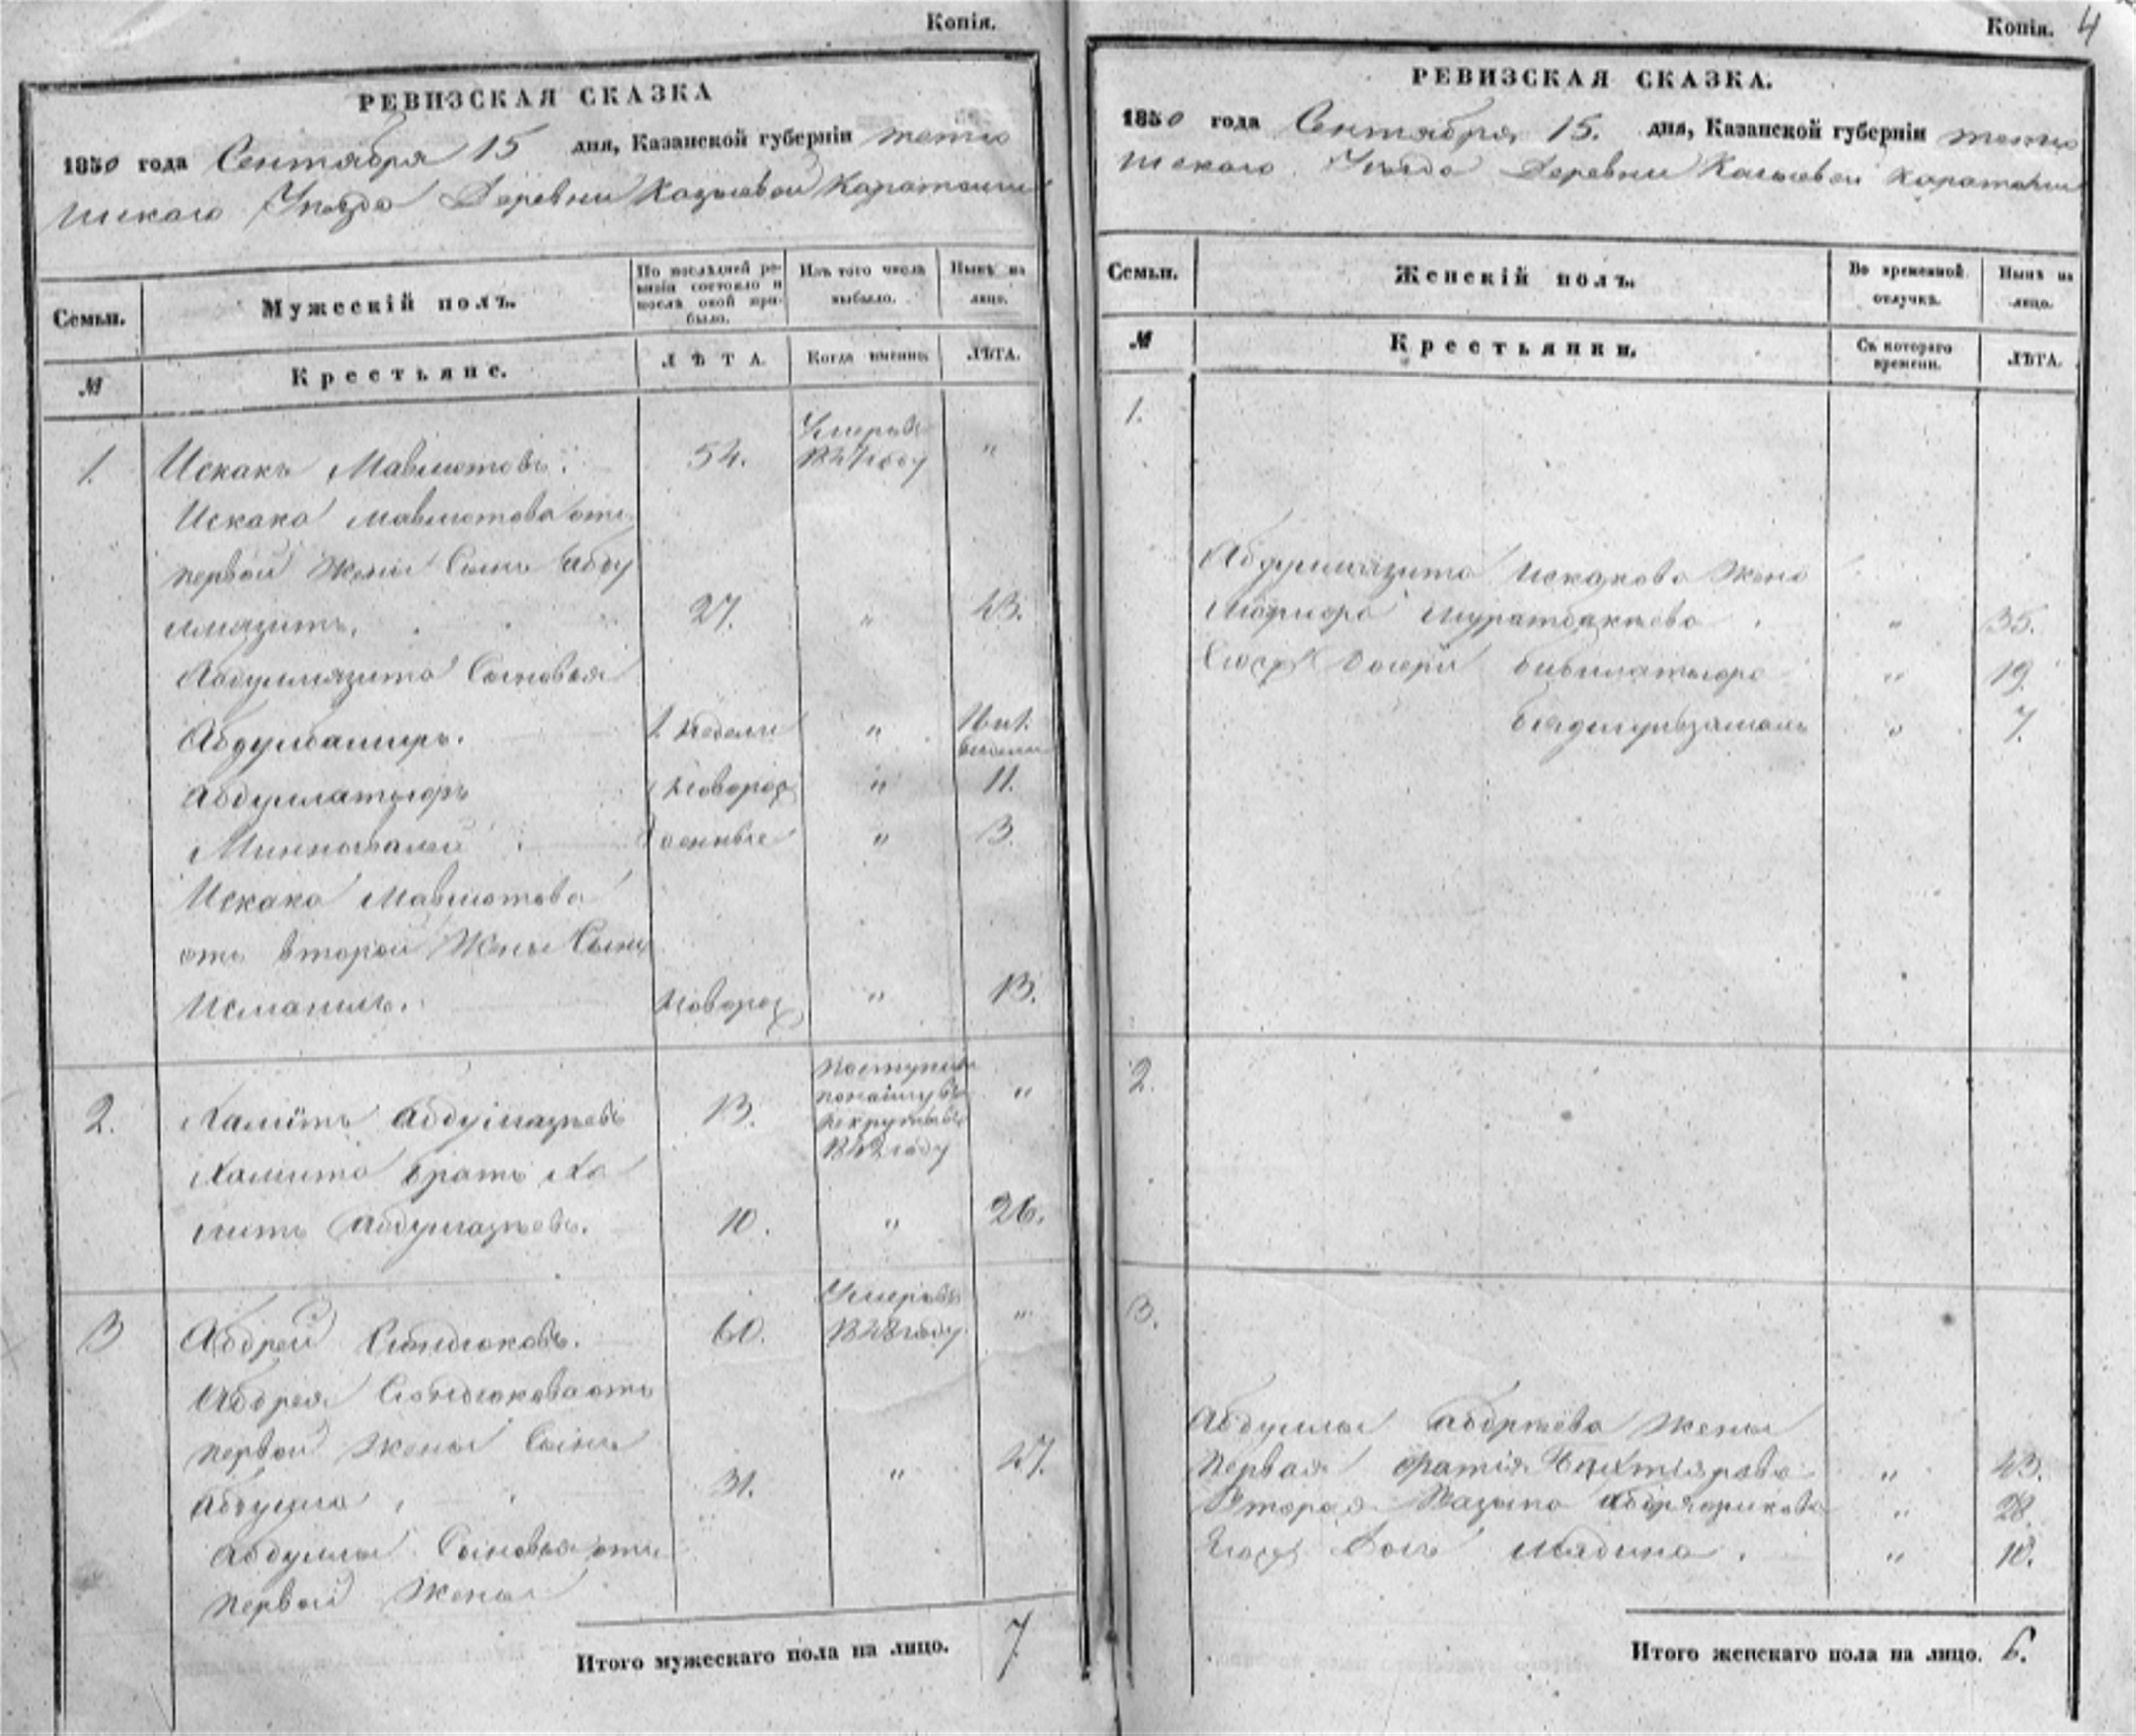 Копія.
РЕВИЗСКАЯ СКАЗКА
1850 года Сентября 15 дня, Казанской губерніи тетю
шскаго Уѣзда Деревни Караташи
Семьи.
Мужескій полъ.
По послѣдней ре-
визіи состояло и
послѣ оной при-
было.
Изъ того числа
выбыло.
Нынѣ на
лицо.
№
Крестьяне.
ЛѢТА.
Когда именно.
ЛѢТА.
1. Искакъ Мавлютовъ. 54. Умеръ въ 1847 году "
Искака Мавлютова отъ
первой жены Сынъ Абду
лмязитъ. 27. " 43.
Абдулмязита Сыновья
Абдулвагиръ. 1 недели " 16 и 1.
Абдуллатыфъ Новорож " 11.
Миннигалей денные " 3.
Искака Мавлютова
отъ второй Жены Сынъ
Исмагилъ. Новорож " 13.
2. Хамитъ 13. Поступилъ
в рекруты въ
1842 году "
Хамита братъ Ха
литъ 10. " 26.
3 Абдрей Сюндюковъ. 60. Умеръ въ 1848 году "
Абдрея Сюндюкова отъ
первой жены Сынъ
Абдулла 31. " 47.
Абдуллы Сыновья отъ
первой Жены
Итого мужескаго пола на лицо. 7
Копія. 4
РЕВИЗСКАЯ СКАЗКА.
1850 года Сентября 15. дня, Казанской губерніи тетю
шскаго Уѣзда Деревни Караташи
Семьи.
Женскій полъ.
Во временной
отлучкѣ.
Нынѣ на
лицо.
№
Крестьянки.
Съ котораго
времени.
ЛѢТА.
1.
Абдулмязита Искакова жена
Муратбакѣева " 35.
Дочери Бибилатыфа " 19.
Бядигулзамалъ " 7.
2.
3.
Абдуллы Абдрѣева Жены
Первая Фатія Бахтіярова " 43.
Вторая " 28.
Дочь Мядина. " 10.
Итого женскаго пола на лицо. 6.